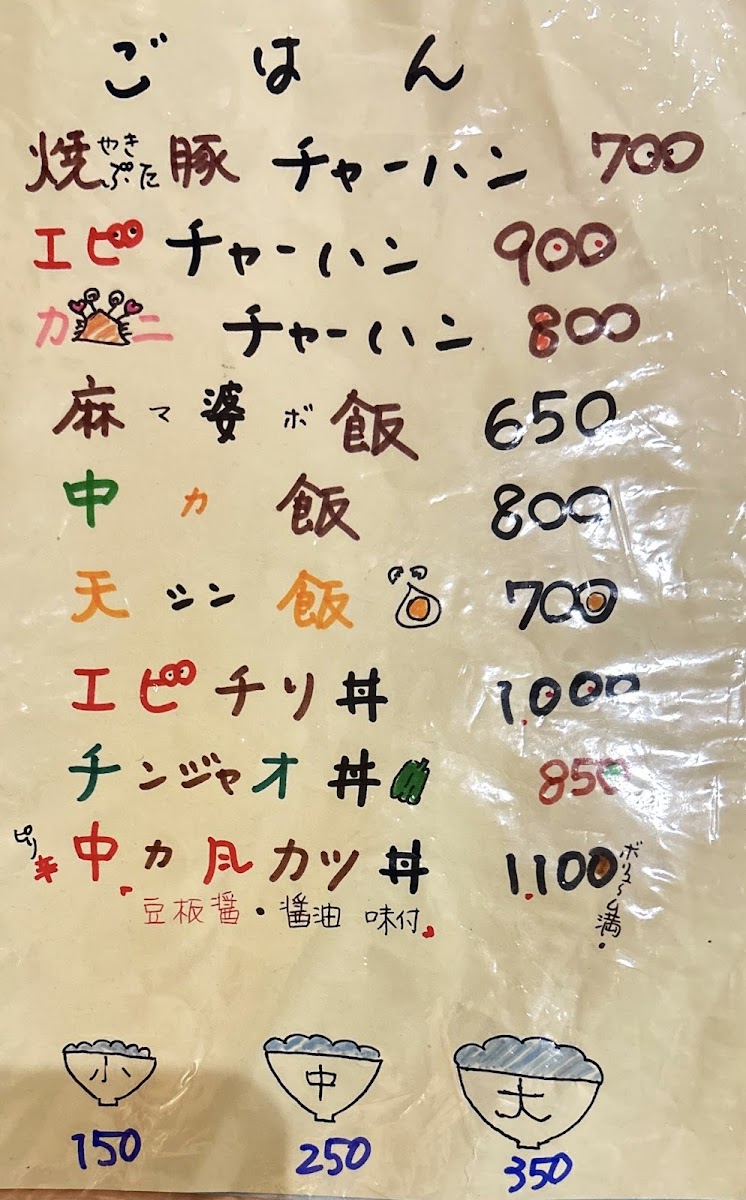 ごはん
焼豚 やきぶた チャーハン 700
エビチャーハン 900
カニチャーハン 800
麻マ婆ボ飯 650
中カ飯 800
天シン飯 700
エビチリ丼 1,000
チンジャオ丼 850
ピリ辛 中カ風カツ丼 1,100 ボリューム満。
豆板醤・醤油 味付
小 中 大
150 250 350